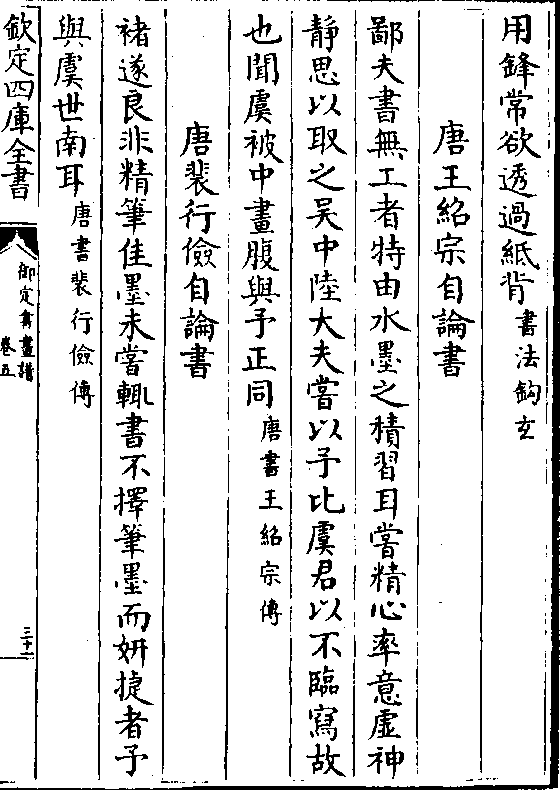 用鋒常欲透過紙背書法鈎玄
唐王紹宗自論書
鄙夫書無工者特由水墨之積習耳嘗精心率意虛神
靜思以取之吴中陸大夫嘗以予比虞君以不臨寫故
也聞虞被中畫腹與予正同唐書王紹宗傳
唐裴行儉自論書
褚遂良非精筆佳墨未嘗輒書不擇筆墨而妍捷者予
與虞世南耳唐書裴行儉傳
欽定四庫全書
御定書畫譜
卷五
三十一